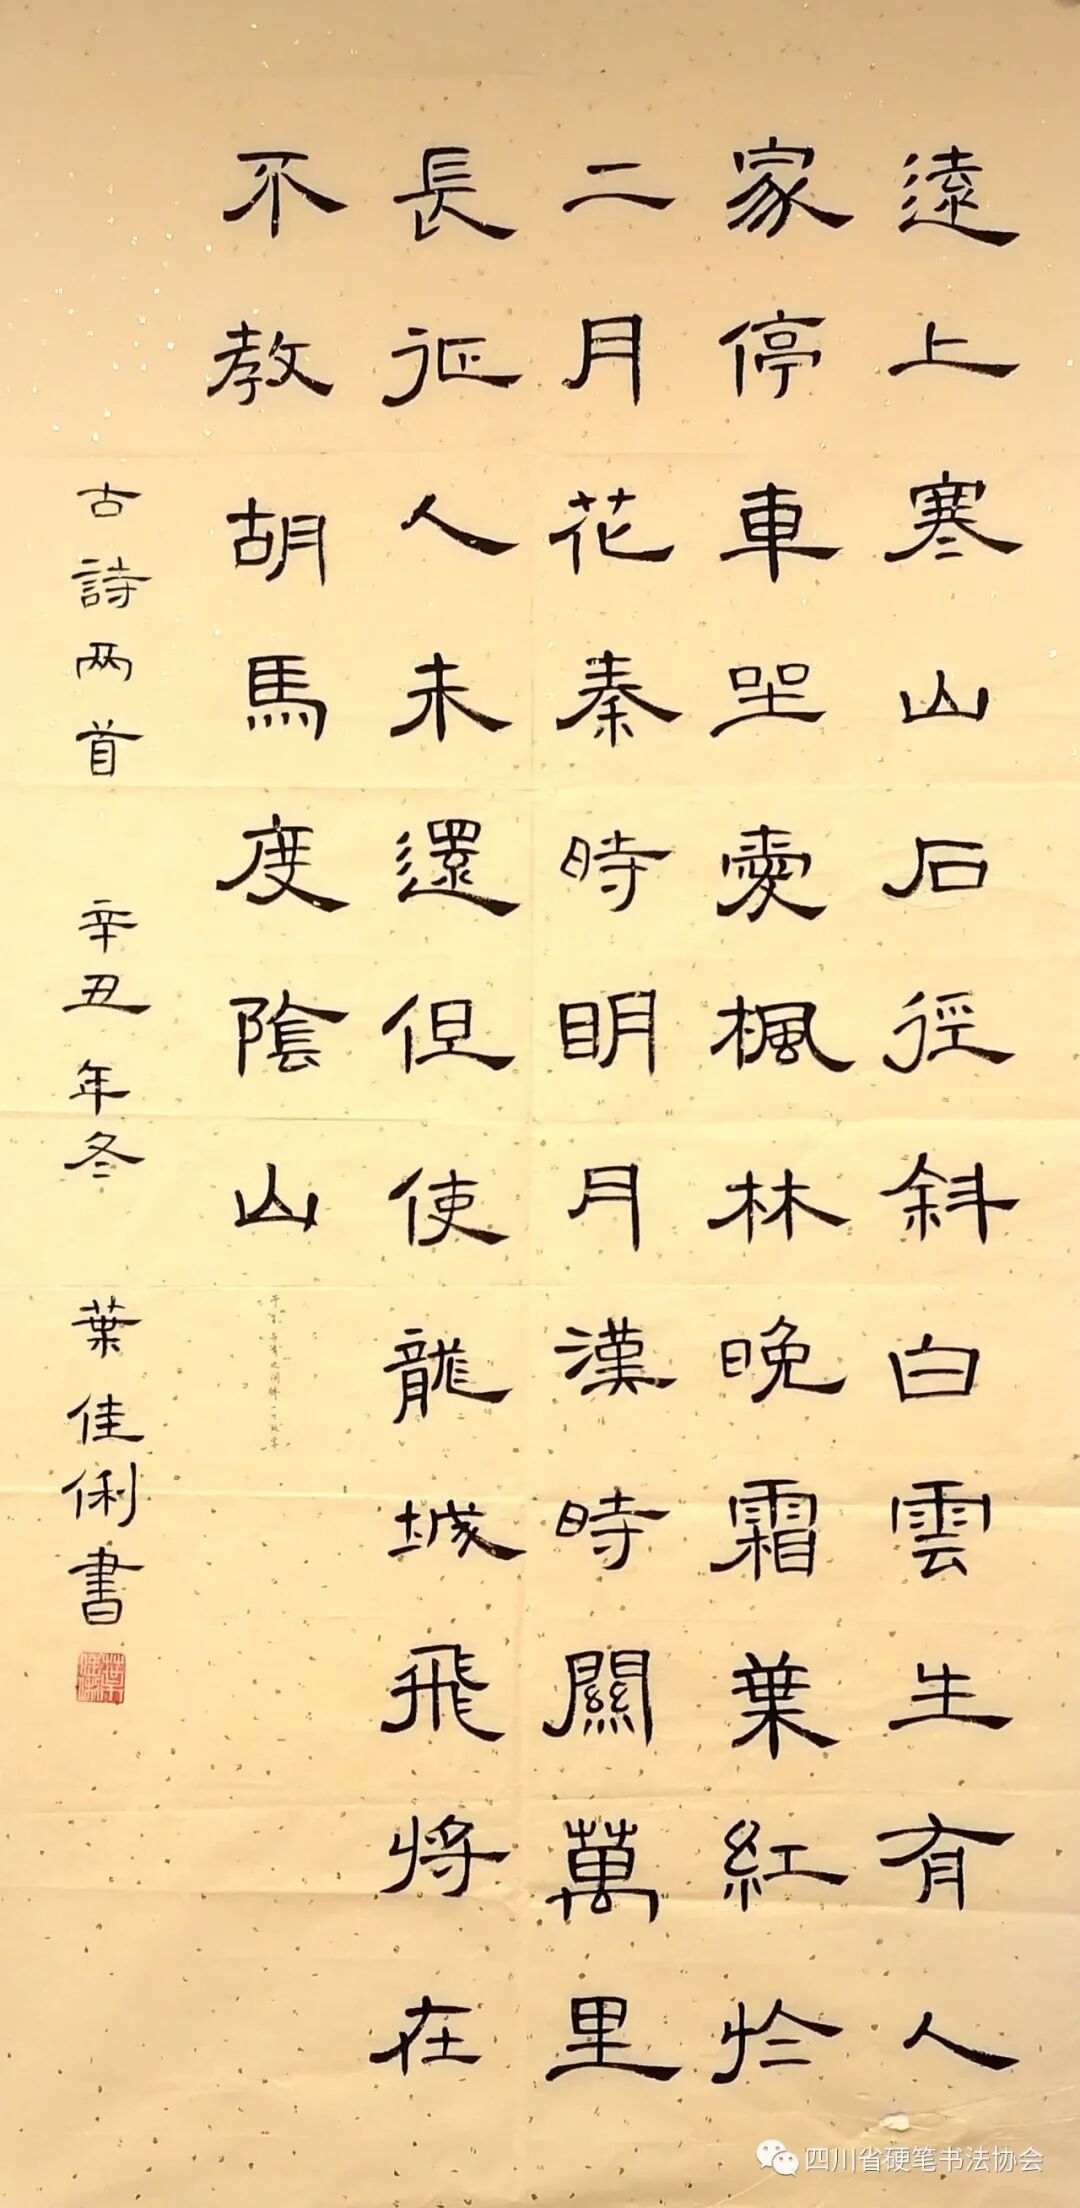 遠上寒山石徑斜白雲生有人
家停車坐愛楓林晚霜葉紅於
二月花秦時眀月漢時關萬里
長征人未還但使龍城飛将在
不教胡馬度陰山
古詩两首 辛丑年冬 葉佳俐書
四川省硬笔书法协会